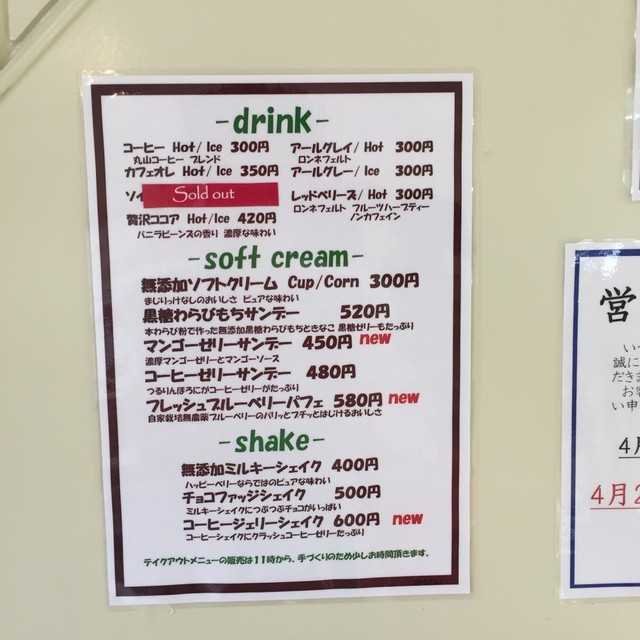 -drink-
コーヒー Hot/Ice 300円
丸山コーヒー ブレンド
カフェオレ Hot/Ice 350円
ソイ Sold out
贅沢ココア Hot/Ice 420円
バニラビーンズの香り 濃厚な味わい
アールグレイ/Hot 300円
ロンネフェルト
アールグレー/Ice 300円
レッドベリーズ/Hot 300円
ロンネフェルト フルーツハーブティー
ノンカフェイン
-soft cream-
無添加ソフトクリーム Cup/Corn 300円
まじりっけなしのおいしさ ピュアな味わい
黒糖わらびもちサンデー 520円
本わらび粉で作った無添加黒糖わらびもちときなこ 黒糖ゼリーもたっぷり
マンゴーゼリーサンデー 450円 new
濃厚マンゴーゼリーとマンゴーソース
コーヒーゼリーサンデー 480円
つるりんほろにがコーヒーゼリーがたっぷり
フレッシュブルーベリーパフェ 580円 new
自家栽培無農薬ブルーベリーのパリッとプチッとはじけるおいしさ
-shake-
無添加ミルキーシェイク 400円
ハッピーベリーならではのピュアな味わい
チョコファッジシェイク 500円
ミルキーシェイクにつぶつぶチョコがいっぱい
コーヒージェリーシェイク 600円 new
コーヒーシェイクにクラッシュコーヒーゼリーたっぷり
テイクアウトメニューの販売は11時から。手づくりのため少しお時間頂きます。
営
いつ
誠に
だきま
お客
い申
4月
4月2